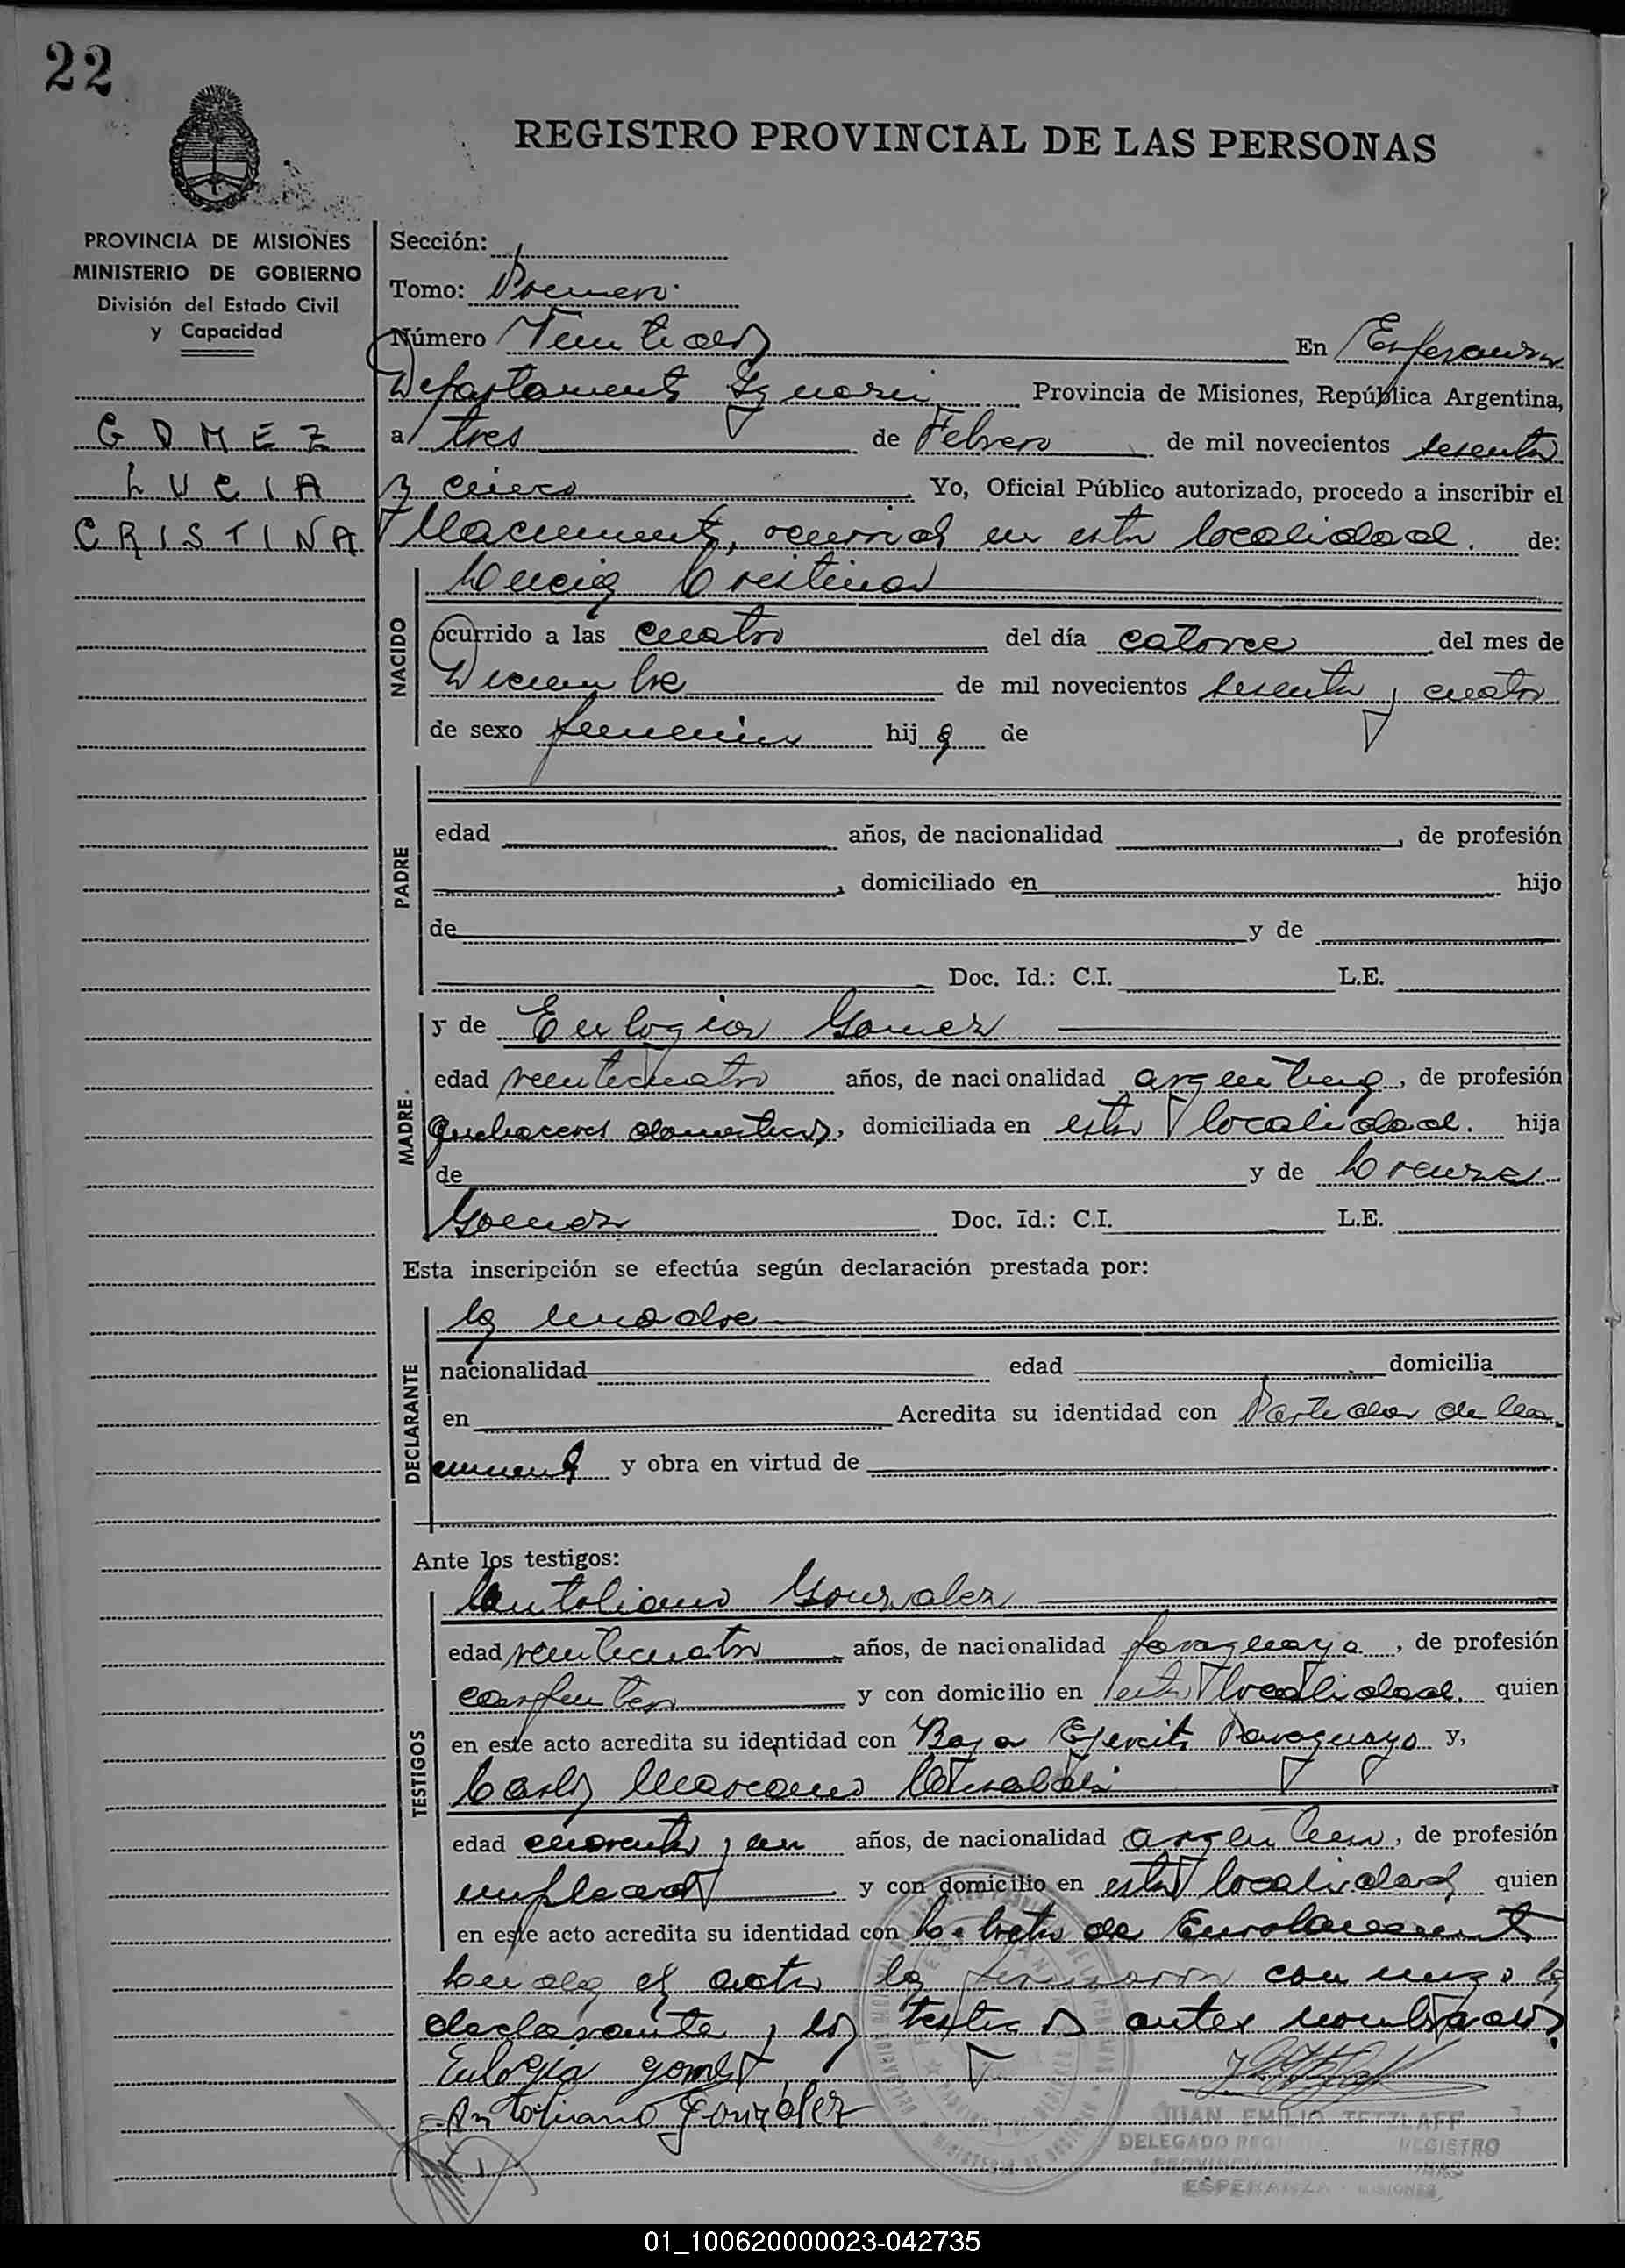 22
REGISTRO PROVINCIAL DE LAS PERSONAS
PROVINCIA DE MISIONES
MINISTERIO DE GOBIERNO
División del Estado Civil
y Capacidad
GOMEZ
LUCIA
CRISTINA
Sección:
Tomo: Primero
Número Veintidos En Esperanza
Departamento Iguazú Provincia de Misiones, República Argentina,
a tres de Febrero de mil novecientos sesenta
y cinco Yo, Oficial Público autorizado, procedo a inscribir el
Nacimiento, ocurrido en esta localidad. de:
NACIDO
Lucia Cristina
ocurrido a las cuatro del día catorce del mes de
Diciembre de mil novecientos sesenta y cuatro
de sexo femenino hija de
PADRE
edad años, de nacionalidad , de profesión
, domiciliado en hijo
de y de
Doc. Id.: C.I. L.E.
MADRE.
y de Eulogia Gomez
edad veinticuatro años, de nacionalidad argentina, de profesión
quehaceres domesticos, domiciliada en esta localidad. hija
de y de Lorenza
Gomez Doc. Id.: C.I. L.E.
Esta inscripción se efectúa según declaración prestada por:
DECLARANTE
la madre
nacionalidad edad domicilia
en Acredita su identidad con Partida de
y obra en virtud de
Ante los testigos:
TESTIGOS
Antoliano Gonzalez
edad veinticuatro años, de nacionalidad paraguaya, de profesión
carpintero y con domicilio en esta localidad. quien
en este acto acredita su identidad con Baja Ejercito Paraguayo y,
Carlos
edad cuarenta y un años, de nacionalidad argentino, de profesión
empleado y con domicilio en esta localidad quien
en este acto acredita su identidad con Libreta de Enrolamiento
Leida el acta la firmaron conmigo la
declarante y los testigos antes nombrados.
Eulogia gomez
Antoliano González
JUAN EMILIO TETZLAFF
DELEGADO REGISTRO
ESPERANZA - MISIONES
01_100620000023-042735